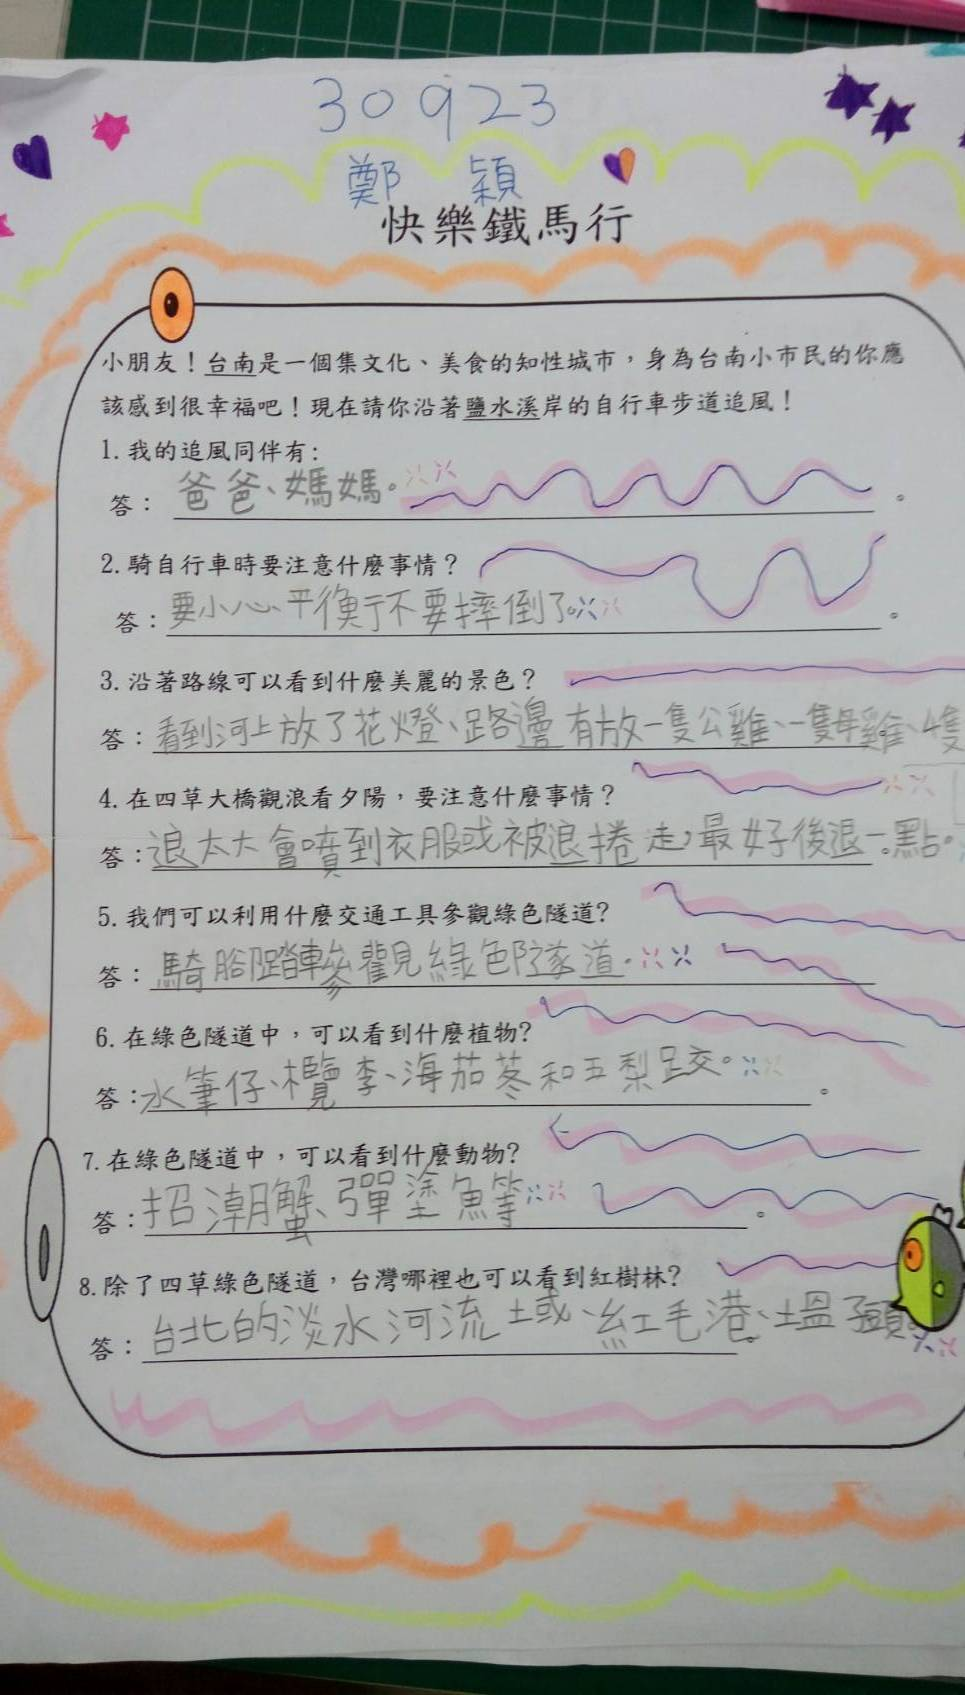 30923
鄭 穎
快樂鐵馬行
小朋友！台南是一個集文化、美食的知性城市，身為台南小市民的你應
該感到很幸福吧！現在請你沿著鹽水溪岸的自行車步道追風！
1. 我的追風同伴有:
答： 爸爸、媽媽。 。
2. 騎自行車時要注意什麼事情？
答：要小心、平衡不要摔倒了。 。
3. 沿著路線可以看到什麼美麗的景色？
答：看到河上放了花燈、路邊有放一隻公雞、一隻母雞、4隻
4. 在四草大橋觀浪看夕陽，要注意什麼事情？
答：浪太大會噴到衣服或被浪捲走，最好後退一點。
5. 我們可以利用什麼交通工具參觀綠色隧道?
答：騎腳踏車參觀綠色隧道。
6. 在綠色隧道中，可以看到什麼植物?
答：水筆仔、欖李、海茄苳和五梨跤。 。
7. 在綠色隧道中，可以看到什麼動物?
答：招潮蟹、彈塗魚等 。
8. 除了四草綠色隧道，台灣哪裡也可以看到紅樹林?
答：台北的淡水河流域、紅毛港、塭子頭。